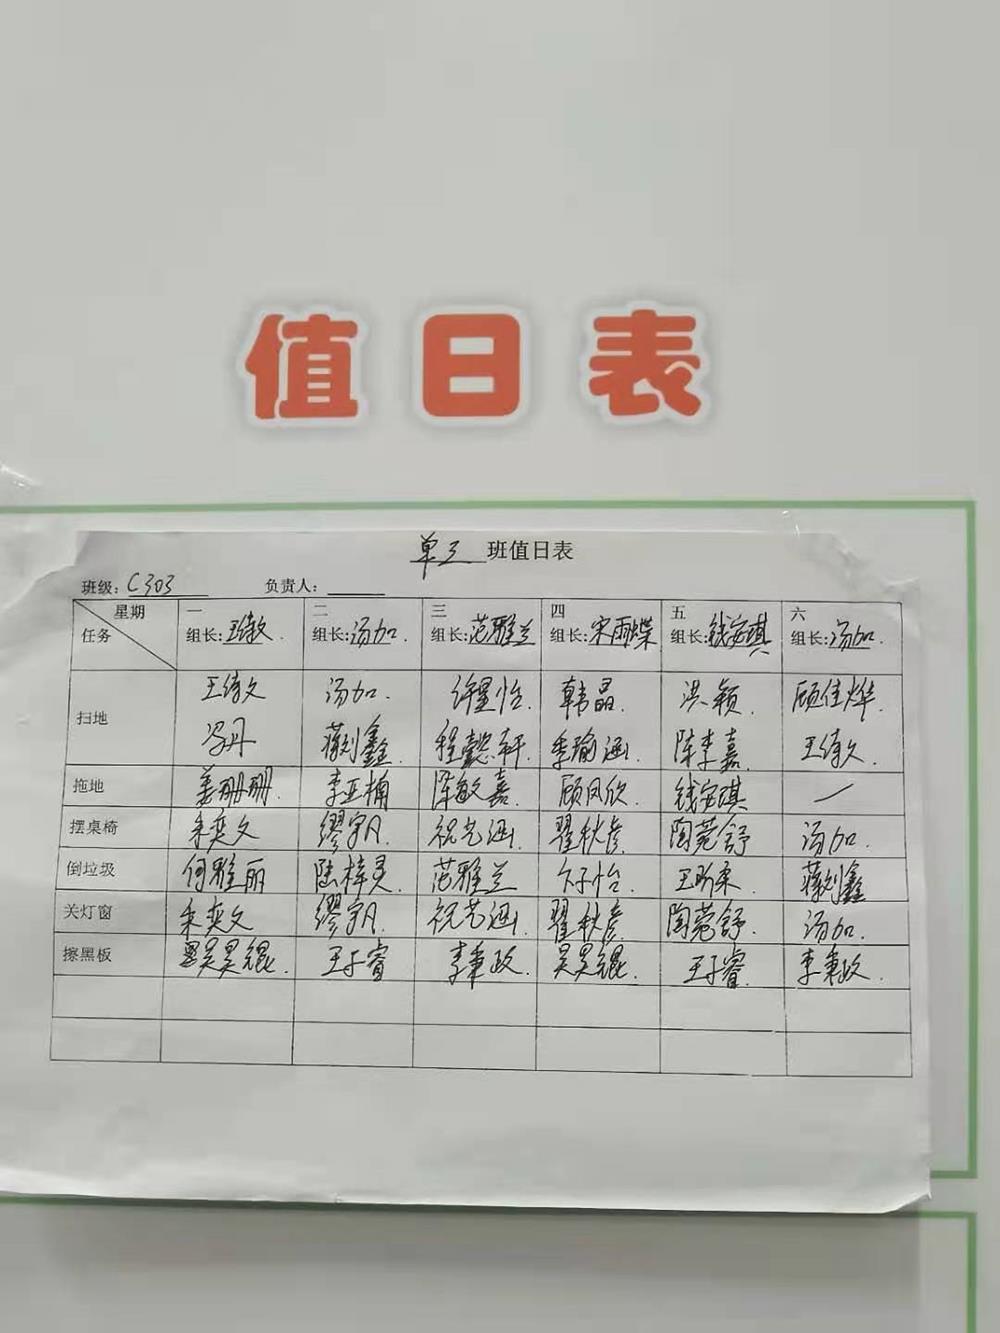 值日表
单三 班值日表
班级: C303 负责人:
星期 一 二 三 四 五 六
任务 组长: 组长: 汤加. 组长: 范雅兰 组长: 宋雨蝶 组长: 钱安琪 组长: 汤加.
王倚文 汤加. 许星怡. 韩晶. 洪颖. 顾佳烨.
扫地
冯丹 蒋刘鑫. 程懿轩. 季瑜涵. 陈李嘉. 王倚文.
拖地 姜珊珊. 李亚楠 陈敏嘉. 顾凤欣. 钱安琪 —
摆桌椅 朱奕文 缪宇凡. 祝艺涵. 翟秋彦. 陶菀舒 汤加.
倒垃圾 何雅丽 陆梓灵. 范雅兰 子怡. 王昕柔. 蒋刘鑫
关灯窗 朱奕文 缪宇凡. 祝艺涵. 翟秋彦 陶菀舒. 汤加.
擦黑板 吴昊锟. 王子睿. 李秉政. 吴昊锟. 王子睿. 李秉政.